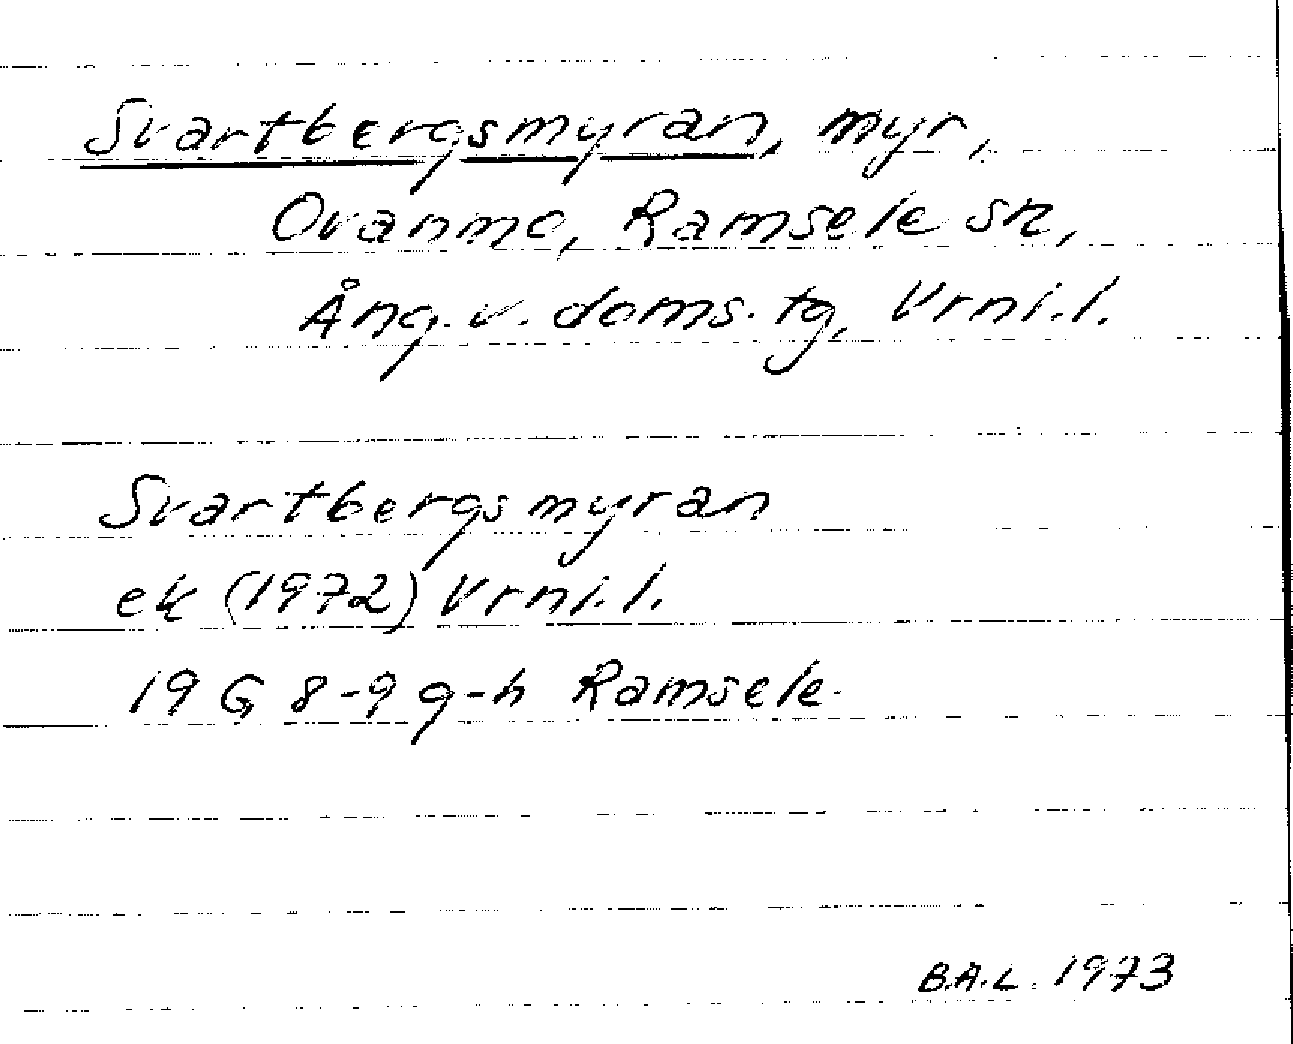 Svartbergsmyran, myr,
Ovanmo, Ramsele sn,
Ång. v. doms. tg, Vrnl. l.
Svartbergsmyran
ek (1972) Vrnl. l.
19 G 8-9 g-h Ramsele.
B.A.L. 1973